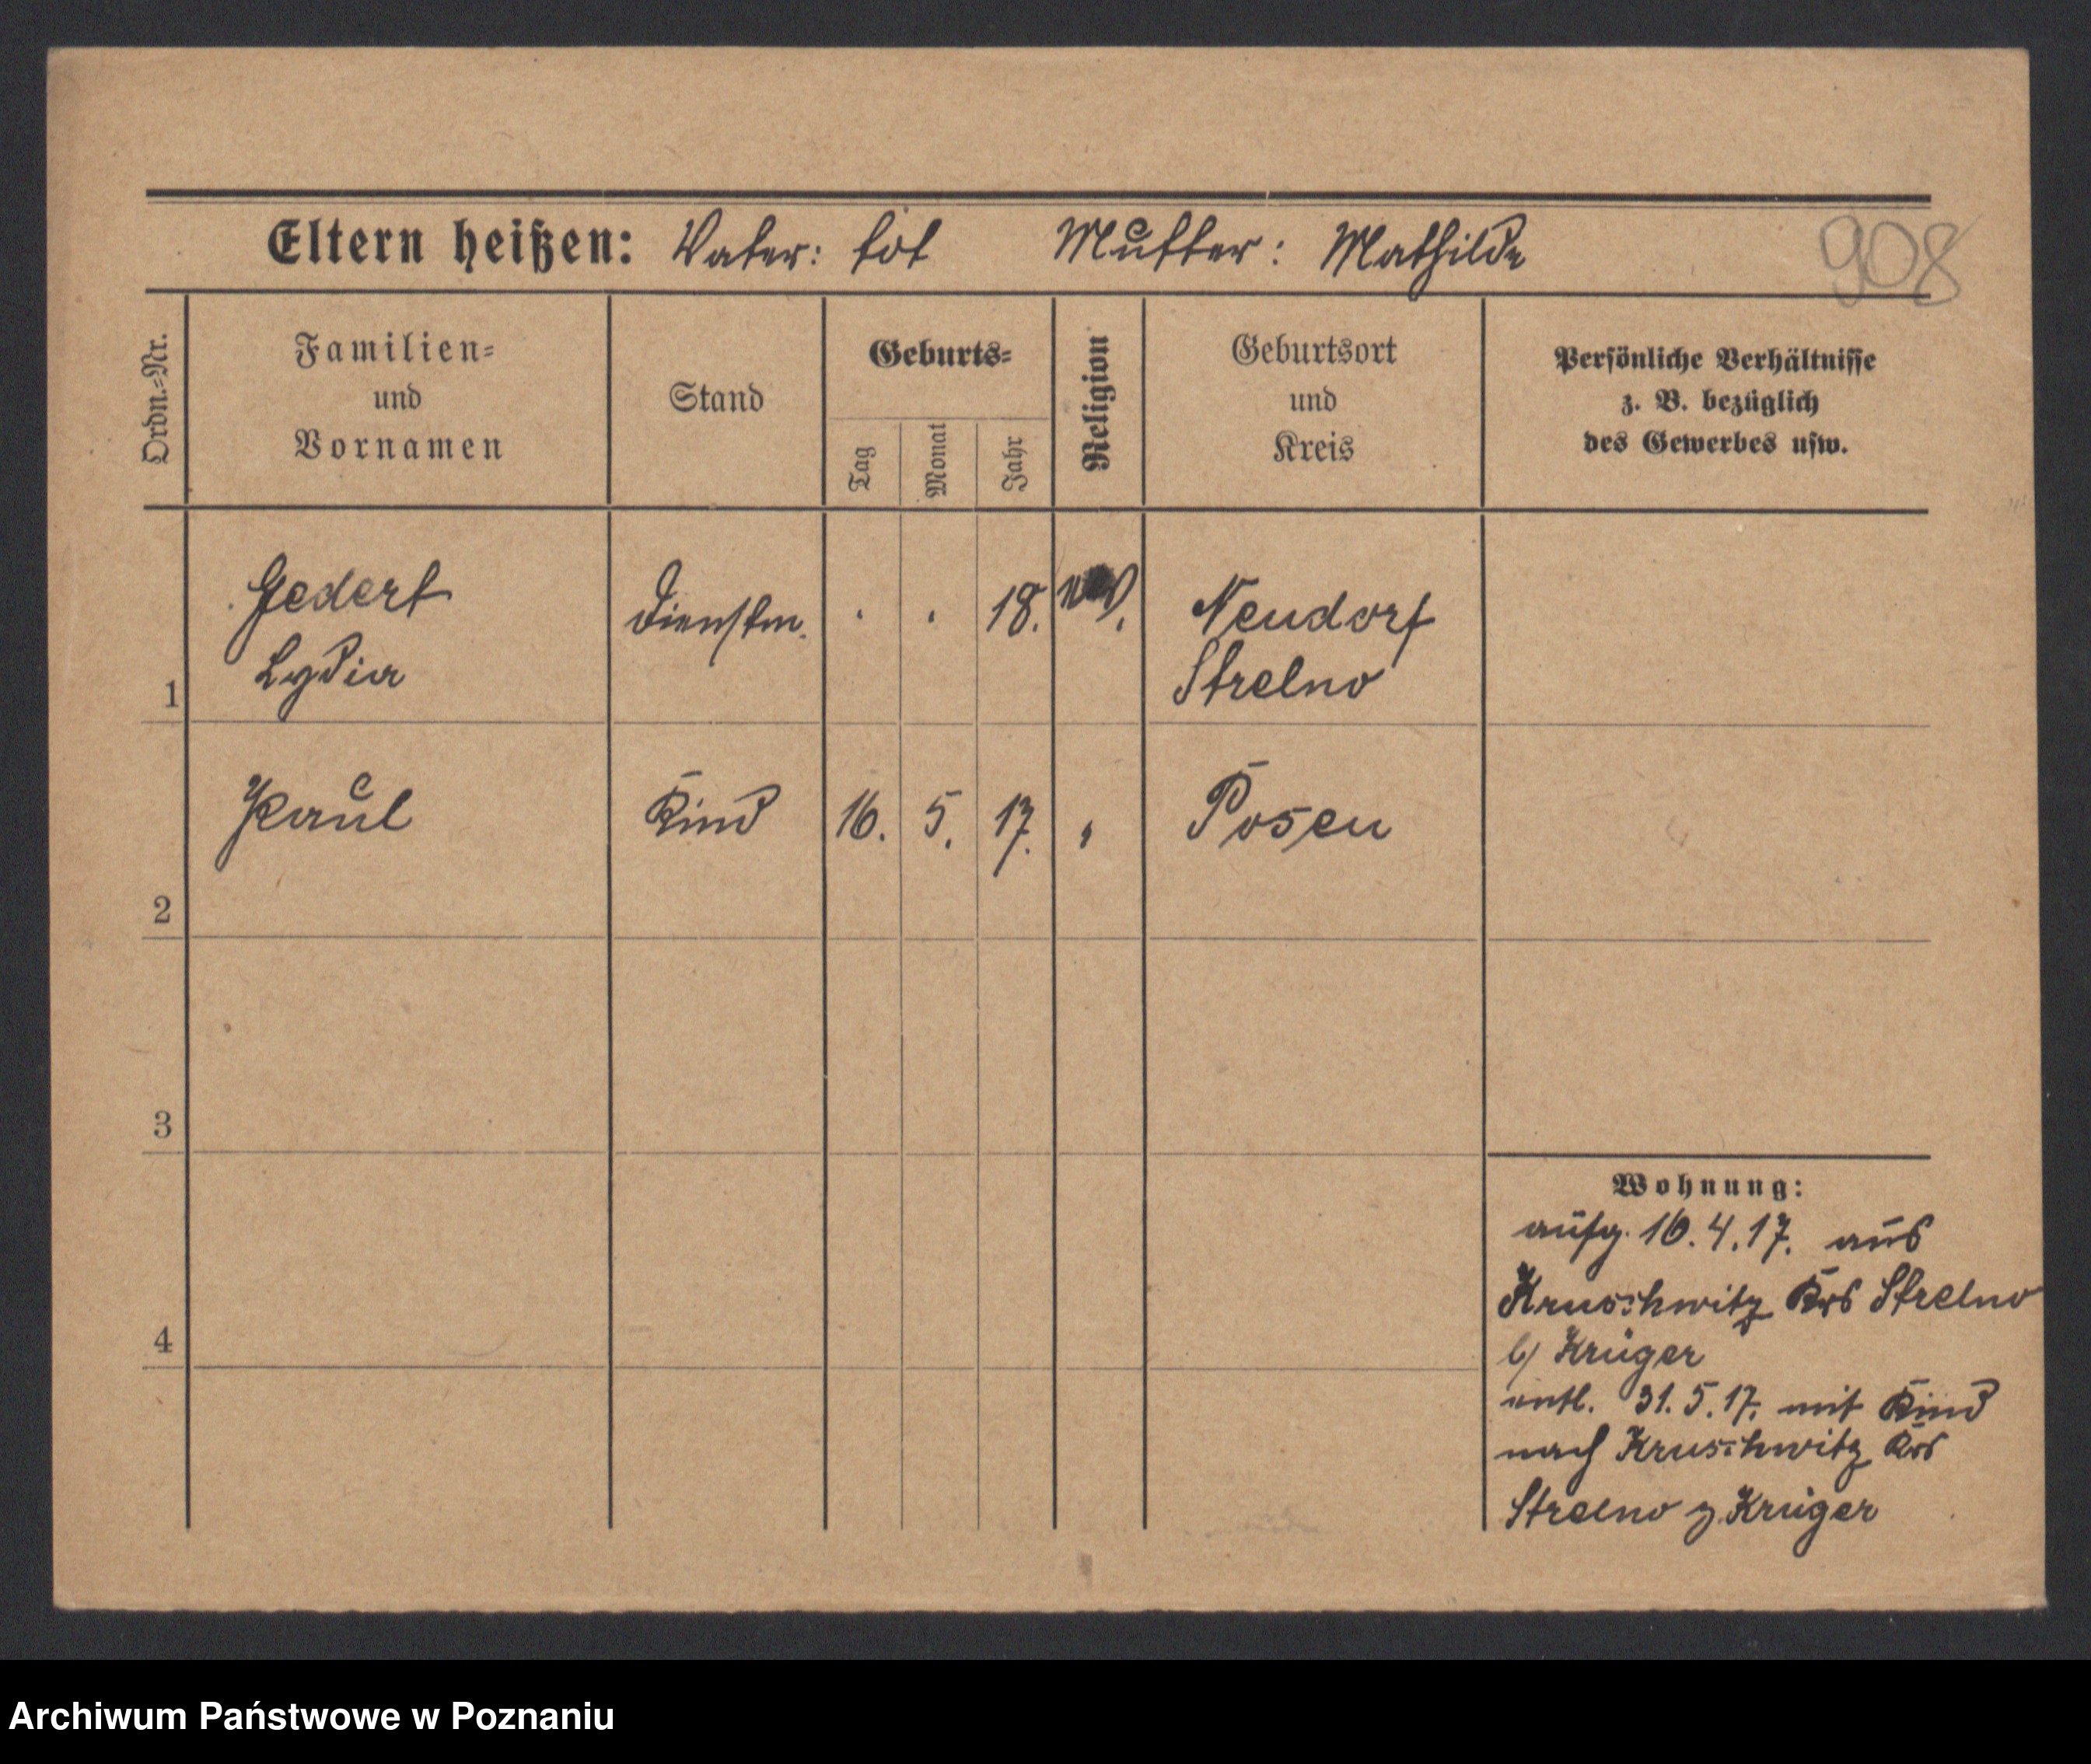 Eltern heißen: Vater: tot Mutter: Mathilde
908
Ordn.-Nr.
Familien-
und
Vornamen
Stand
Geburts-
Tag
Monat
Jahr
Religion
Geburtsort
und
Kreis
Persönliche Verhältnisse
z. B. bezüglich
des Gewerbes usw.
1
Gedert
Lydia
Dienstm.
. . 18.
Neudorf
Strelno
2
Paul
Kind
16. 5. 17.
"
Posen
3
4
Wohnung:
aufg. 16.4.17. aus
Kruschwitz Krs Strelno
b/ Krüger
entl. 31.5.17. mit Kind
nach Kruschwitz Krs
Strelno z. Krüger
Archiwum Państwowe w Poznaniu